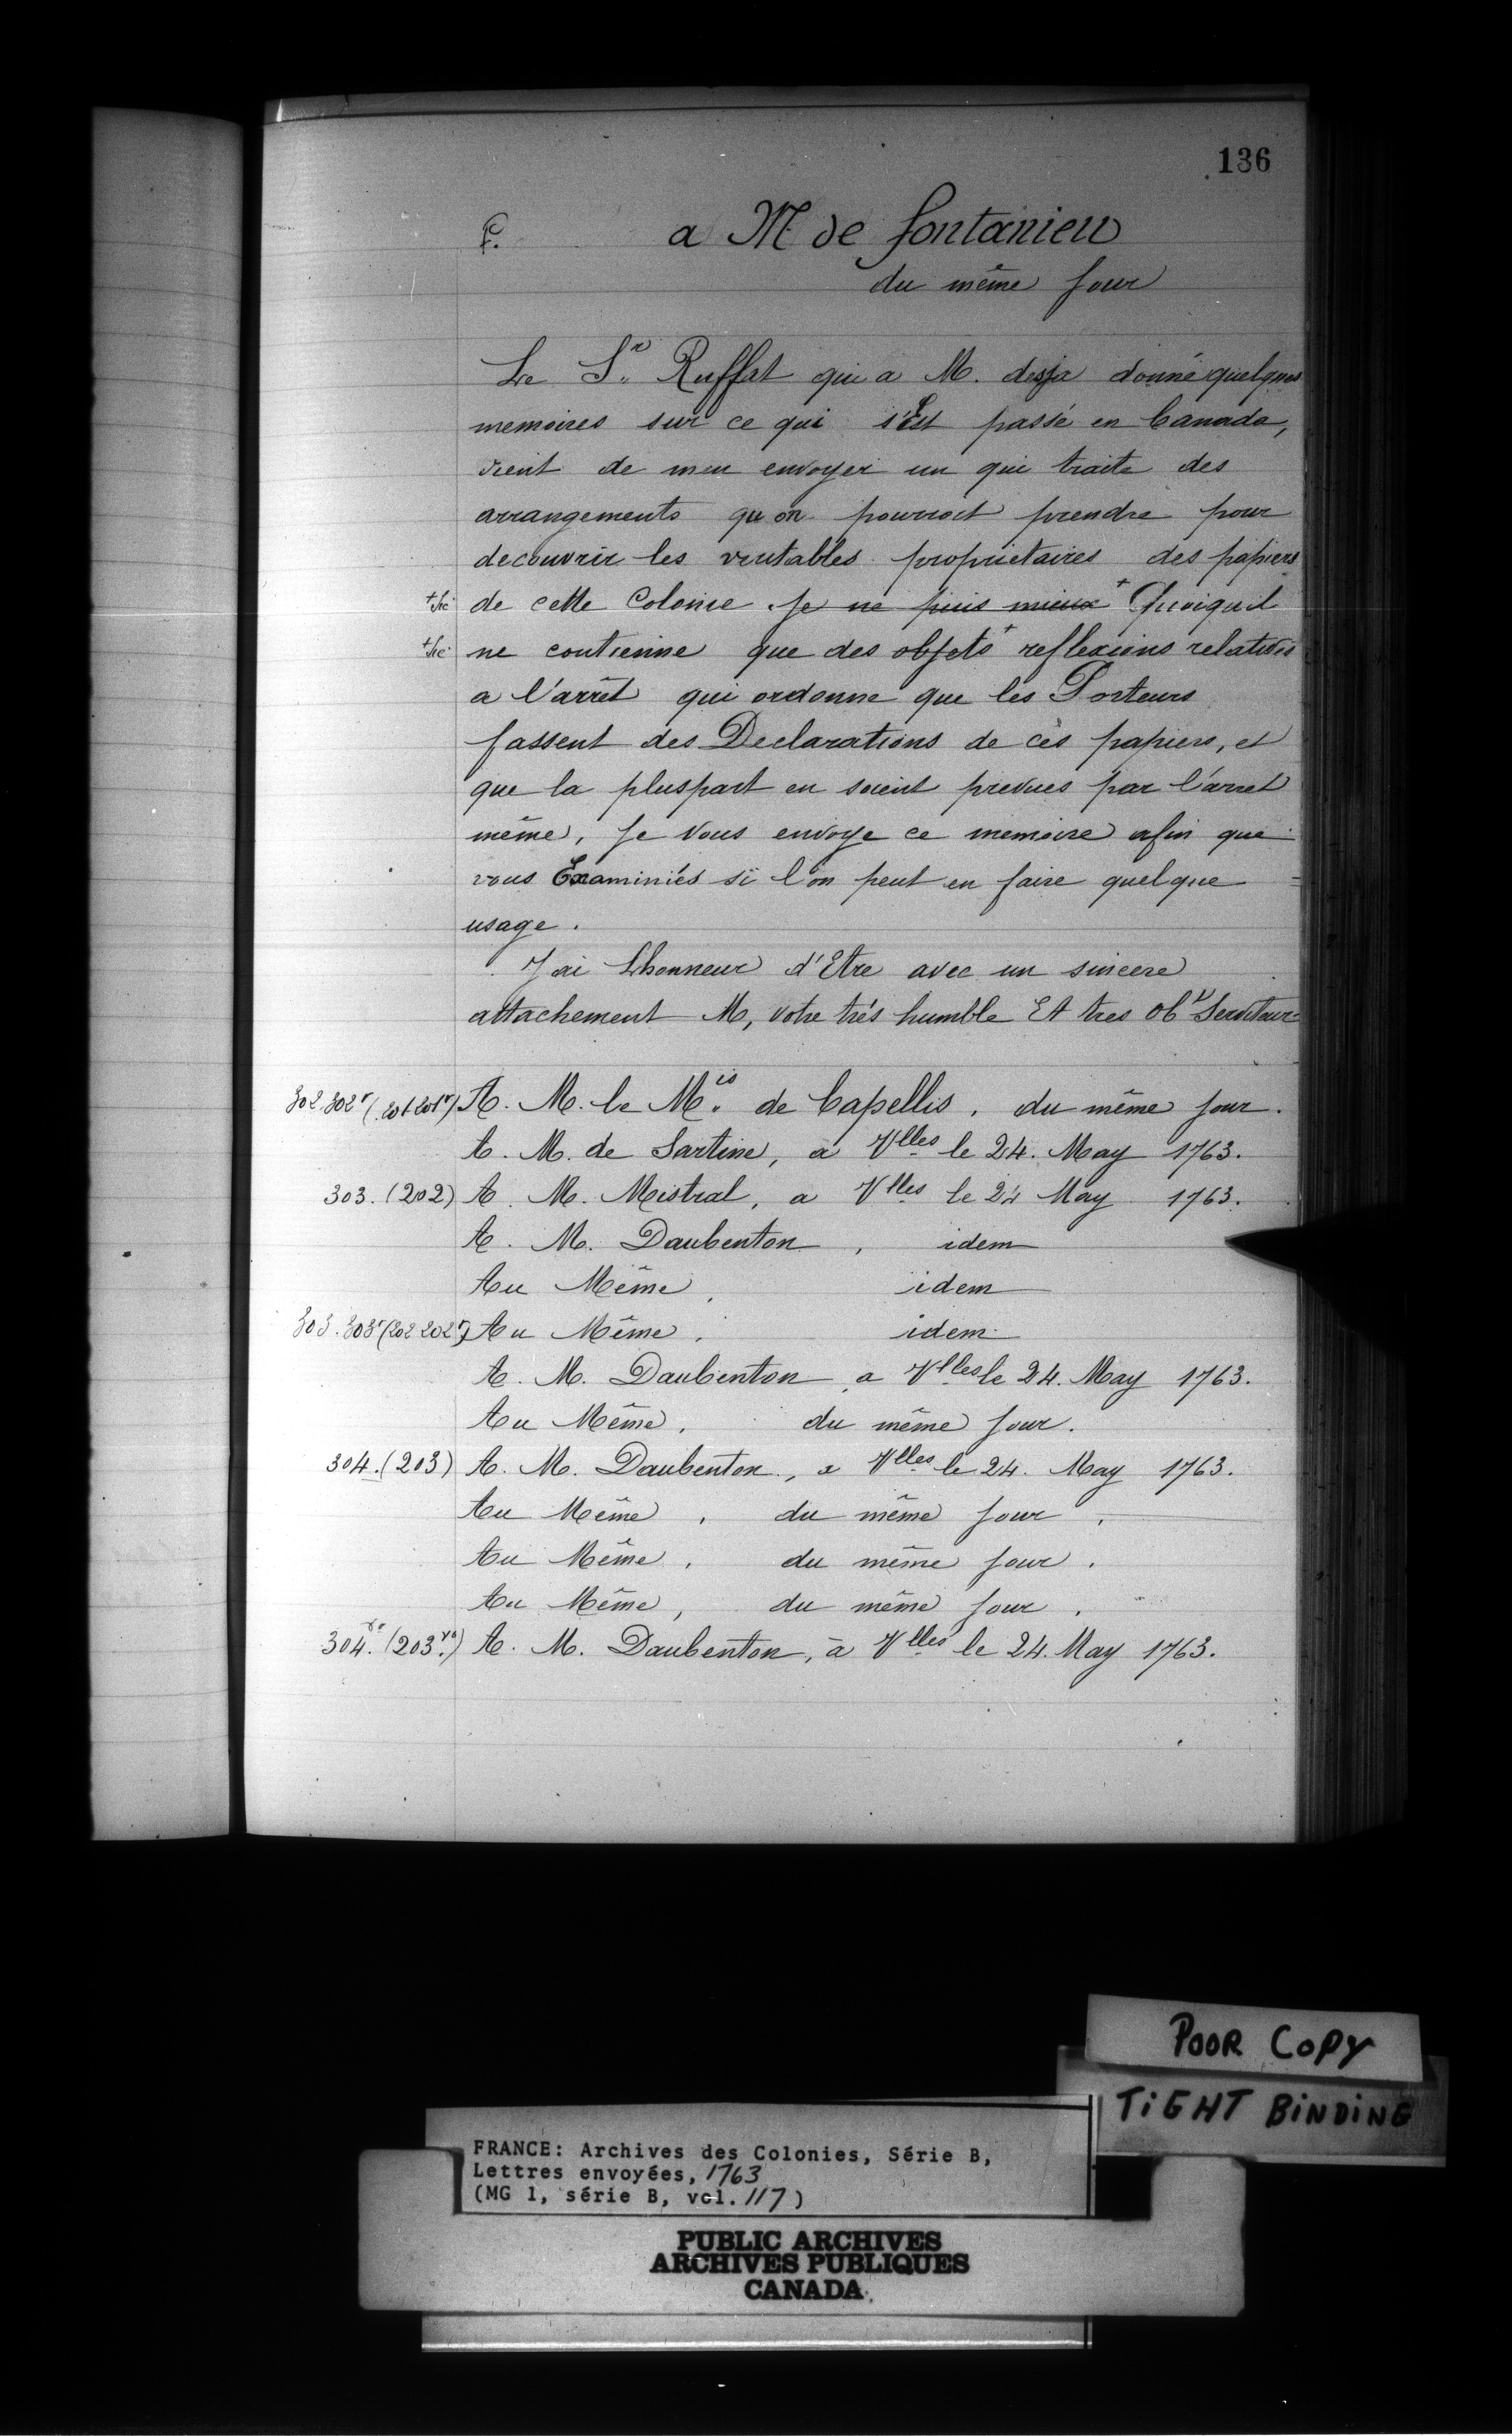 136
a M de fontanieu
du même Jour
Le S.r Ruffat qui a M. desja donné quelques
memoires sur ce qui s'Est passé en Canada,
vient de men envoyer un qui traite des
arrangements qu on pourroit prendre pour
decouvrir les veritables proprietaires des papiers
+sic de cette Colonie Je ne puis mieux + Quoiquil
+sic ne contienne que des objets + reflexions relatives
a l'arrêt qui ordonne que les Porteurs
fassent des Declarations de ces papiers, et
que la pluspart en soient prevues par l'arret
même, Je Vous envoye ce memoire afin que
vous Examiniés si l'on peut en faire quelque
usage.
J'ai Lhonneur d'Etre avec un sincere
attachement M, votre très humble Et tres Obt Serviteur
302.302v (201 201v) A. M. le M.is de Capellis. du même jour.
A. M. de Sartine, a Vlles le 24. May 1763.
303. (202) A. M. Mistral, a Vlles le 24 May 1763.
A. M. Daubenton, idem
Au Même, idem
303.303v (202 202v) Au Même. idem
A. M. Daubenton, a Vlles le 24. May 1763.
Au Même. du même jour.
304. (203) A. M. Daubenton, a Vlles le 24. May 1763.
Au Même. du même jour.
Au Même. du même jour.
Au Même, du même jour.
304.vo (203.vo) A. M. Daubenton, à Vlles le 24. May 1763.
POOR COPY
TIGHT BINDING
FRANCE: Archives des Colonies, Série B,
Lettres envoyées, 1763
(MG 1, série B, vol. 117)
PUBLIC ARCHIVES
ARCHIVES PUBLIQUES
CANADA